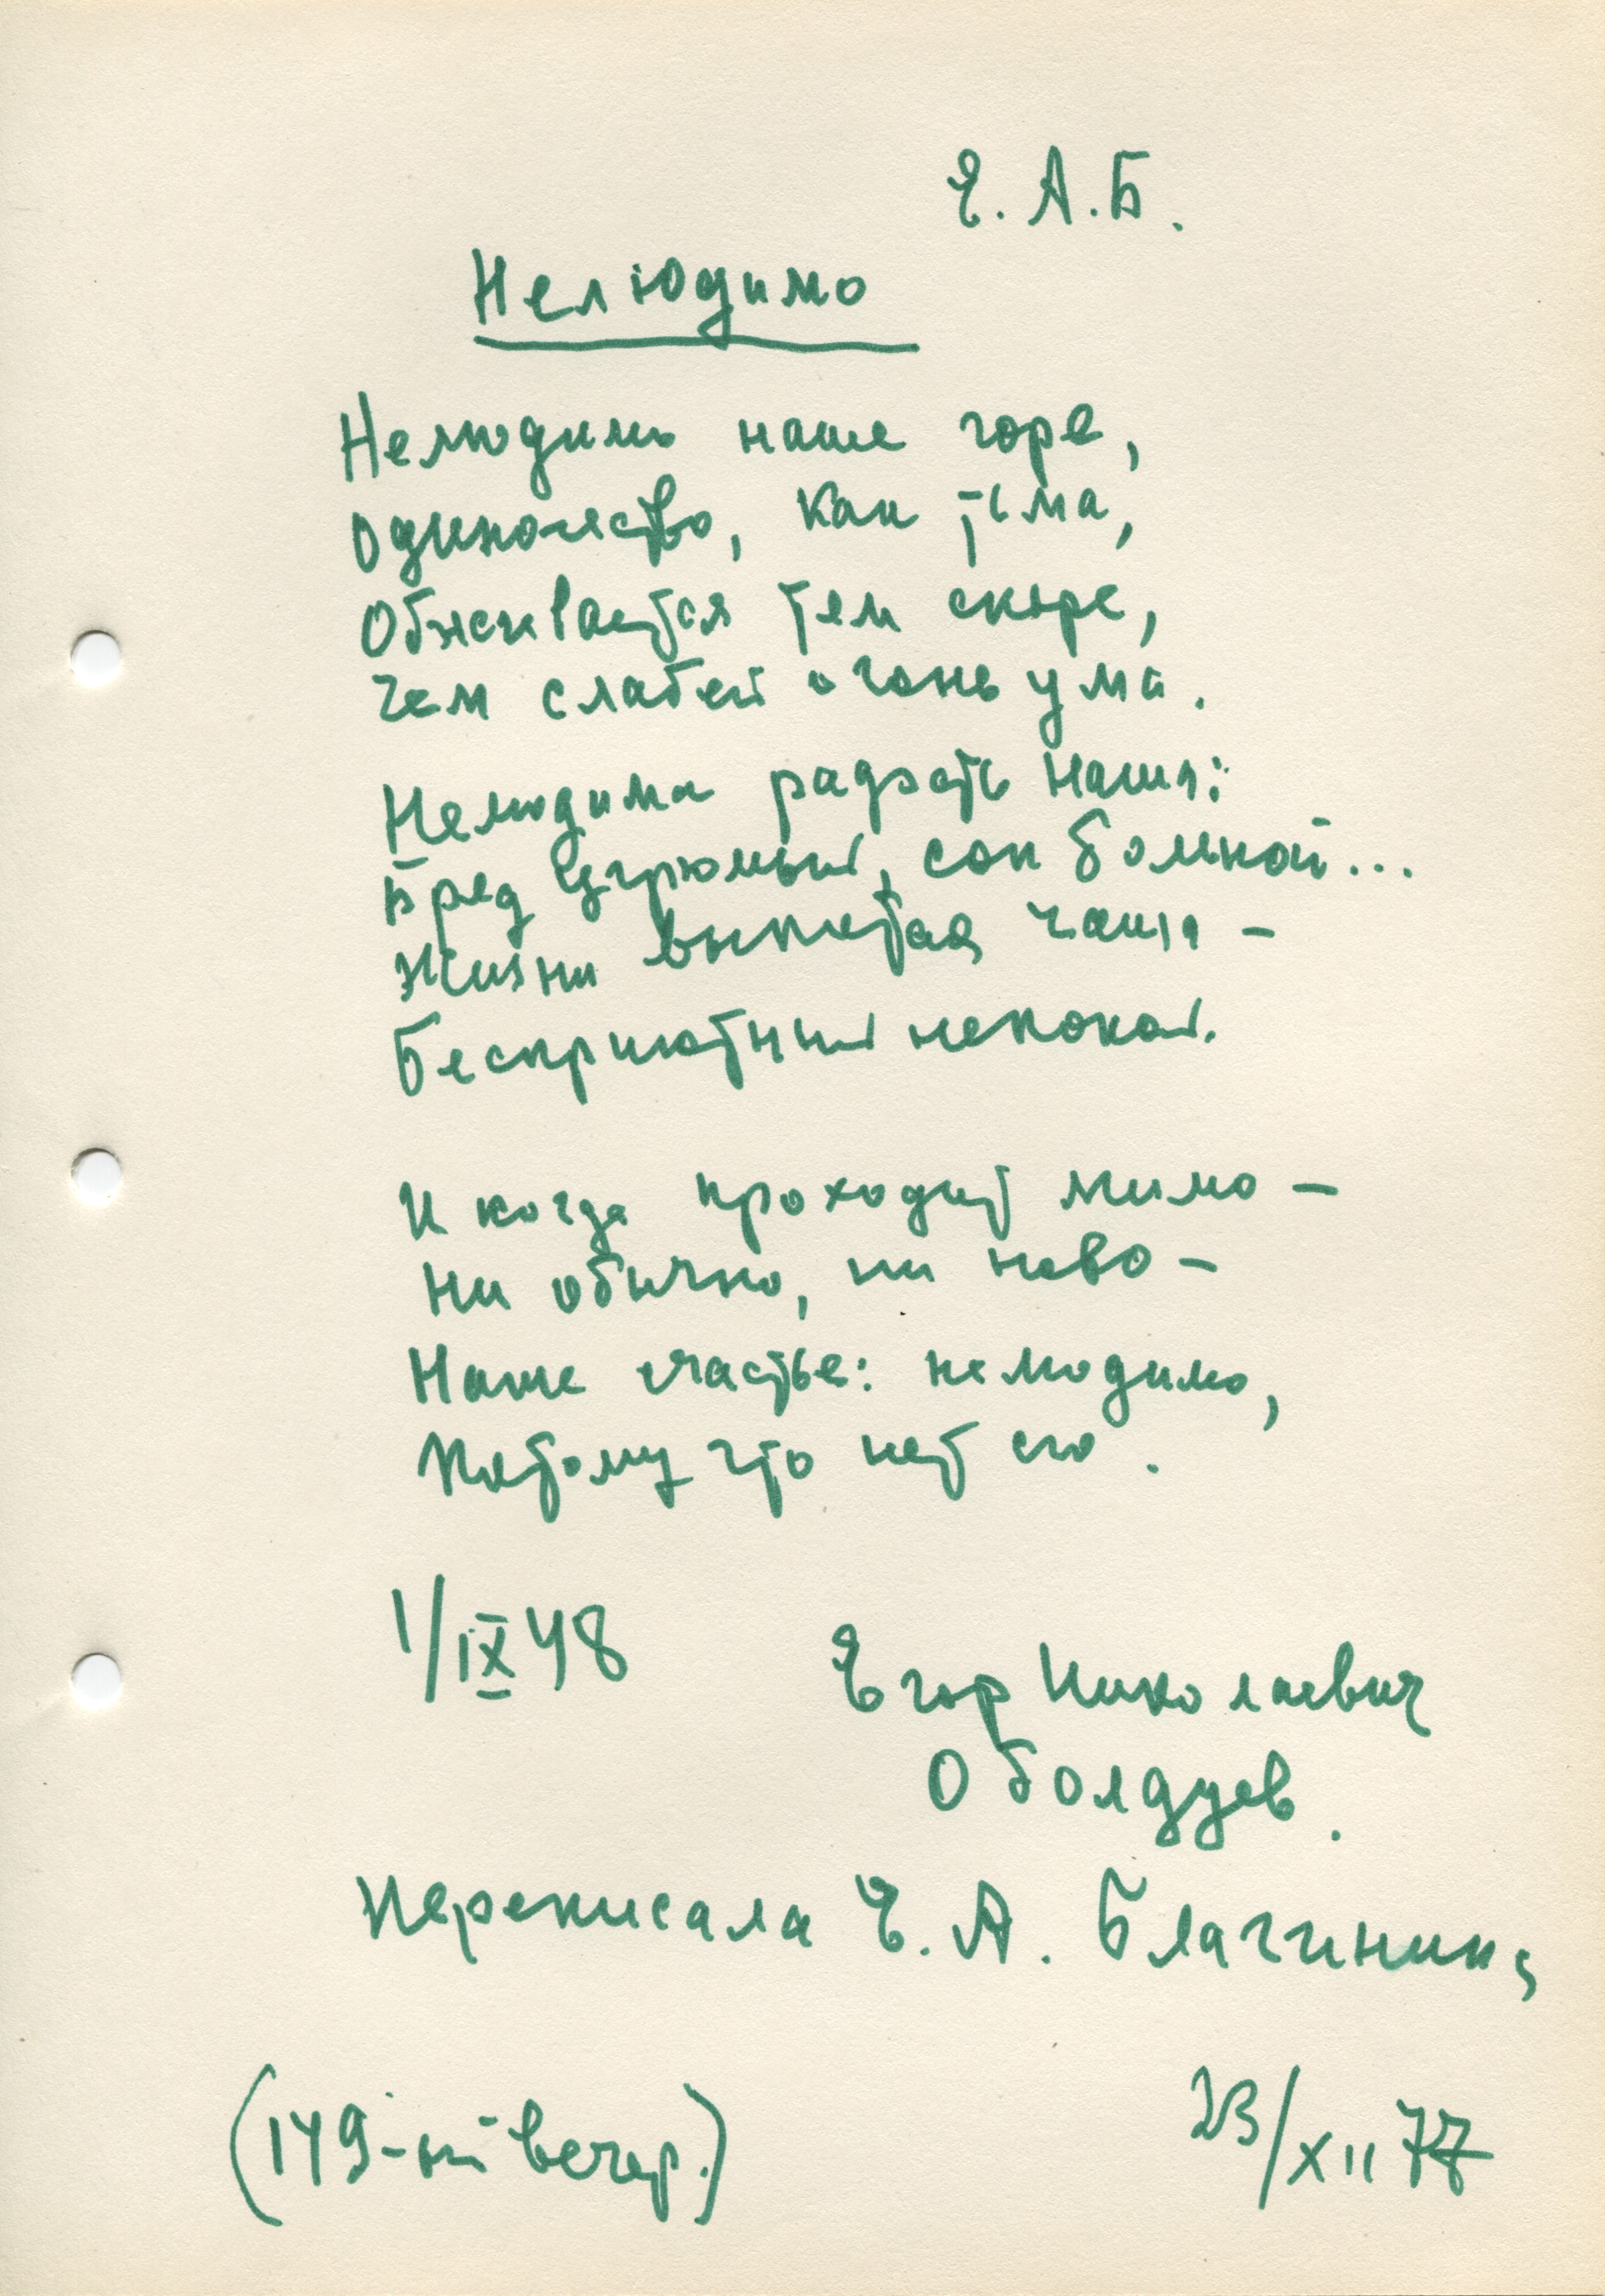 Е. А. Б.
Нелюдимо
Нелюдимо наше горе,
Одиночество, как тьма,
Обживается тем скоре,
Чем слабей огонь ума.
Нелюдима радость наша:
Бред угрюмый, сон больной...
Жизни выпитая чаша –
Бесприютный непокой.
И когда проходит мимо –
Ни обычно, ни ново –
Наше счастье: нелюдимо,
Потому что нет его.
1/IX 48
Егор Николаевич
Оболдуев.
Переписала Е. А. Благинина,
23/XII 77
(149-ый вечер.)